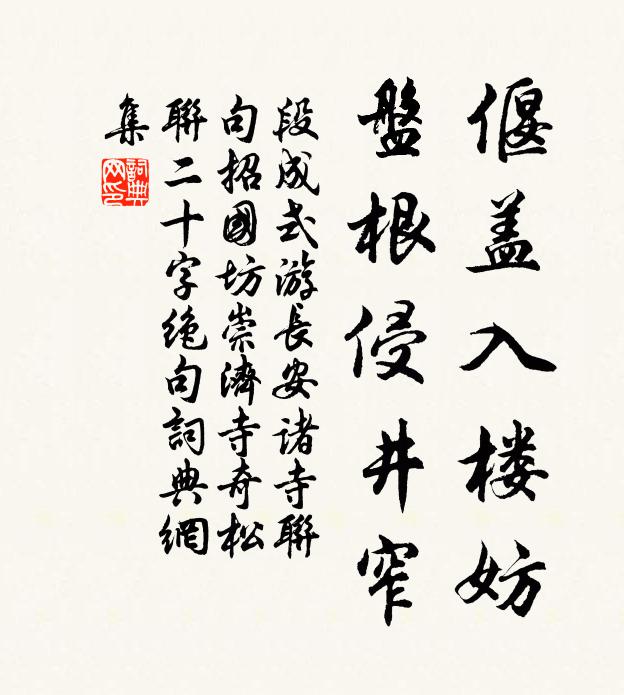 偃盖入楼妨
盤根侵井窄
段成式游長安诸寺聯
句招國坊崇濟寺奇松
聯二十字绝句詞典網
集
詞典
网印